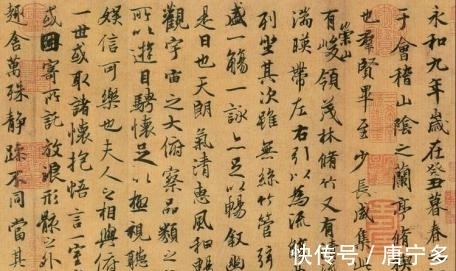 永和九年歲在癸丑暮春
于會稽山陰之蘭亭脩
也羣賢畢至少長咸集
有崇山峻領茂林脩竹又有
湍暎帶左右引以為流
列坐其次雖無絲竹管弦
盛一觴一詠亦足以暢叙
是日也天朗氣清惠風和暢
觀宇宙之大俯察品類之
所以遊目騁懷足以極視聽
娛信可樂也夫人之相與俯
一世或取諸懷抱悟言一室
或因寄所託放浪形骸之外
趣舍萬殊静躁不同當其
快传号 / 唐宁多